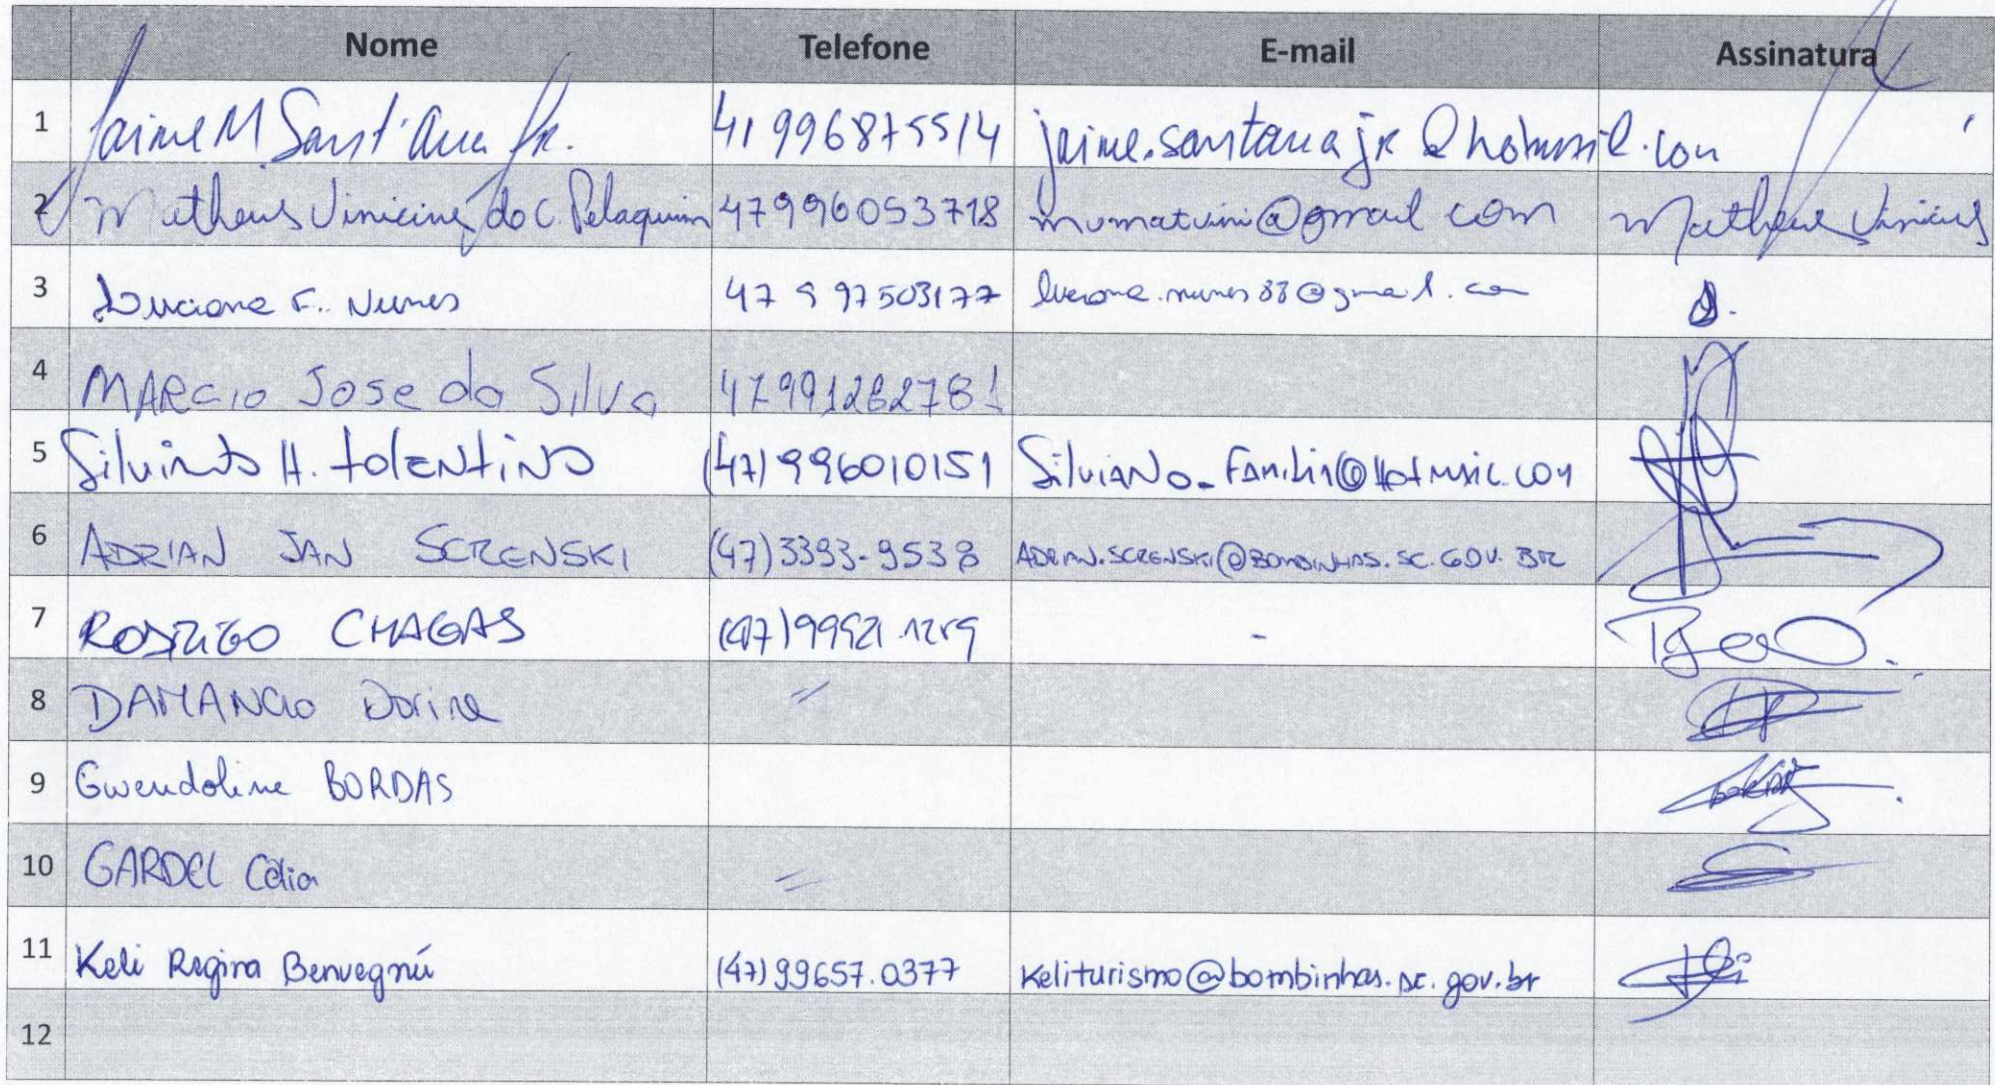 Nome Telefone E-mail Assinatura
1 Jaime M Sant'Ana Jr. 41 996875514 jaime.santanajr@hotmail.com
2 Matheus Vinicius do C. Pelaquim 47996053718 mvmatvini@gmail com Matheus Vinicius
3 Luciane F. Nunes 47 9 97503177 luciane.nunes83@gmail.com
4 MARCIO Jose da Silva 47991282781
5 H. tolENtiNo (47) 996010151 SilviANo_FAmiliA@Hotmail.com
6 ADRIAN JAN SCRENSKI (47)3393-9538 ADRIAN.SCRENSKI@BOMBINHAS.SC.GOV.BR
7 RODRIGO CHAGAS (47)99921.1259 -
8 DAMANCIO Dorine
9 Gwendoline BORDAS
10 GARDEL Célia
11 Keli Regina Benvegnú (47) 99657.0377 Keliturismo@bombinhas.sc.gov.br
12